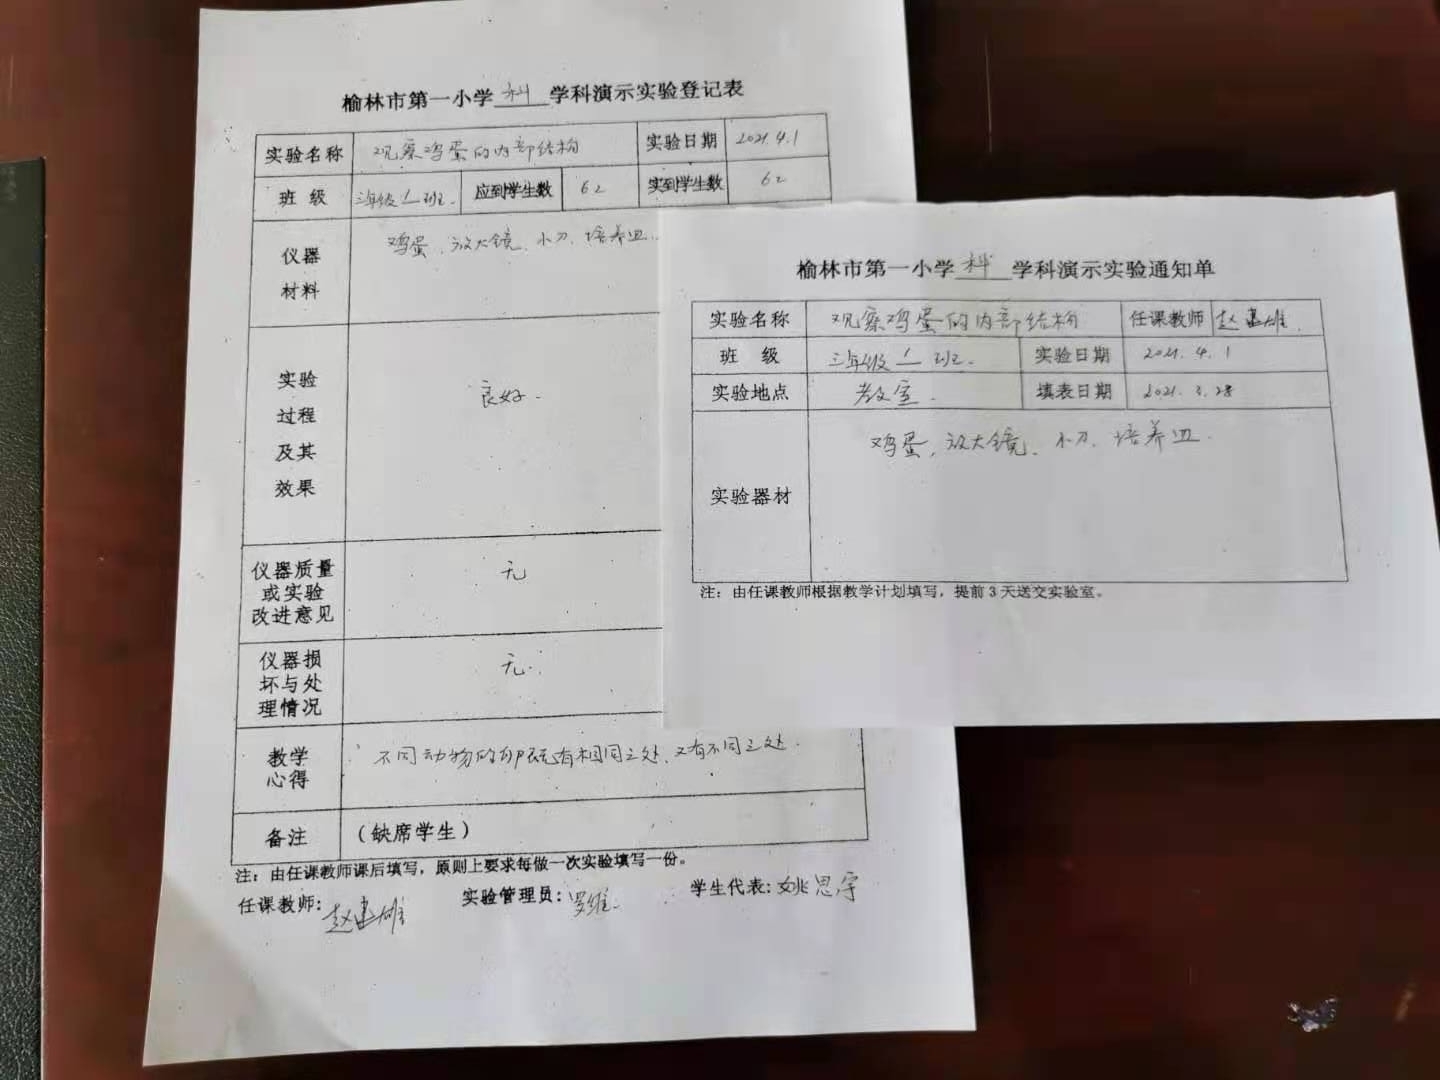 榆林市第一小学 科 学科演示实验登记表
实验名称 观察鸡蛋的内部结构 实验日期 2021.4.1
班 级 三年级1班. 应到学生数 62 实到学生数 62
仪器材料 鸡蛋、放大镜、小刀、培养皿.
实验过程及其效果 良好.
仪器质量或实验改进意见 无
仪器损坏与处理情况 无.
教学心得 不同动物的卵既有相同之处、又有不同之处.
备注 (缺席学生)
注: 由任课教师课后填写，原则上要求每做一次实验填写一份。
任课教师: 赵建雄 实验管理员: 罗维. 学生代表: 姚思宇
榆林市第一小学 科 学科演示实验通知单
实验名称 观察鸡蛋的内部结构 任课教师 赵建雄.
班 级 三年级1班. 实验日期 2021.4.1
实验地点 教室. 填表日期 2021.3.28
实验器材 鸡蛋、放大镜、小刀、培养皿.
注: 由任课教师根据教学计划填写，提前3天送交实验室。